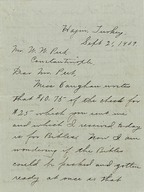 Sept. 21, 1909
Mr. W. W. Peet,
Constantinople
Dear Mr. Peet,
Miss Vaughan writes
that $10.75 of the check for
$25 which you sent
and which I received today
is for Bibles. Now I am
wondering if the Bibles
could be packed and gotten
ready at once so that